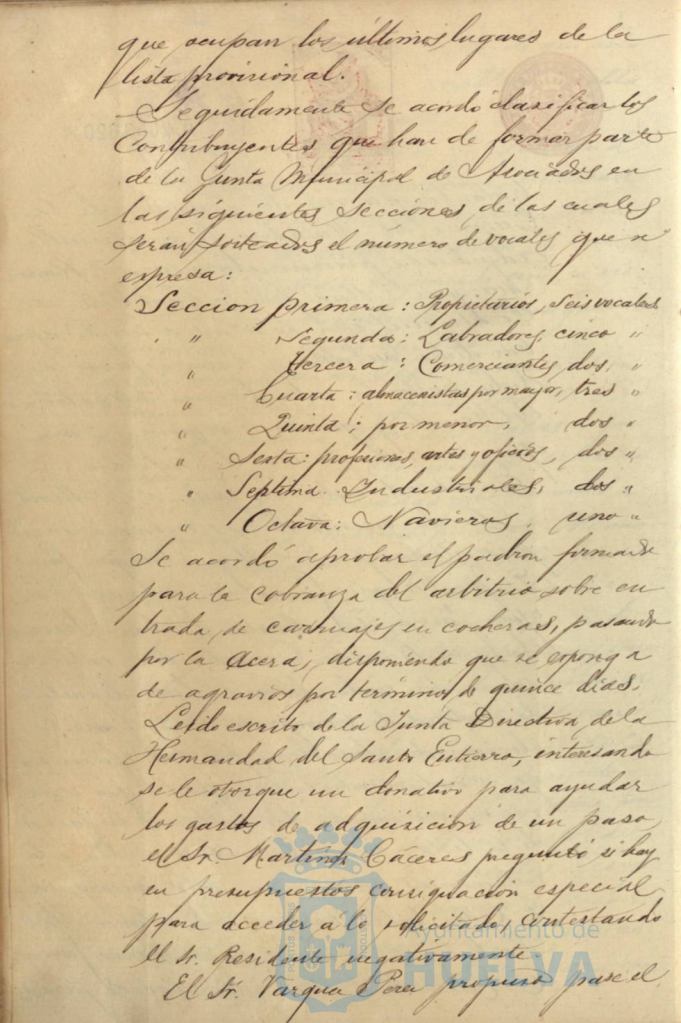 que ocupan los últimos lugares de la
lista provisional.
Seguidamente se acordó clasificar los
Contribuyentes que han de formar parte
de la Junta Municipal de Asociados en
las siguientes secciones, de las cuales
serán sorteados el número de vocales que se
expresa:
Seccion primera: Propietarios, seis vocales
" " Segunda: Labradores, cinco "
" tercera: Comerciantes, dos, "
" Cuarta: almacenistas por mayor, tres "
" Quinta; por menor, dos "
" Sexta: profesiones, artes y oficios, dos "
" Septima. Industriales, dos "
" Octava: Navieros, uno "
Se acordó aprobar el padron formado
para la cobranza del arbitrio sobre en
trada de carruajes en cocheras, pasando
por la acera, disponiendo que se exponga
de agravios por término de quince dias.
Leido escrito de la Junta Directiva de la
Hermandad del Santo Entierro, interesando
se le otorgue un donativo para ayudar
los gastos de adquisicion de un paso,
el Sr. Martinez Cáceres preguntó si hay
en presupuestos consignacion especial
para acceder a lo solicitado, contestando
el Sr. Presidente negativamente
El Sr. Vazquez Perez propuso pase el
Ayuntamiento de
HUELVA